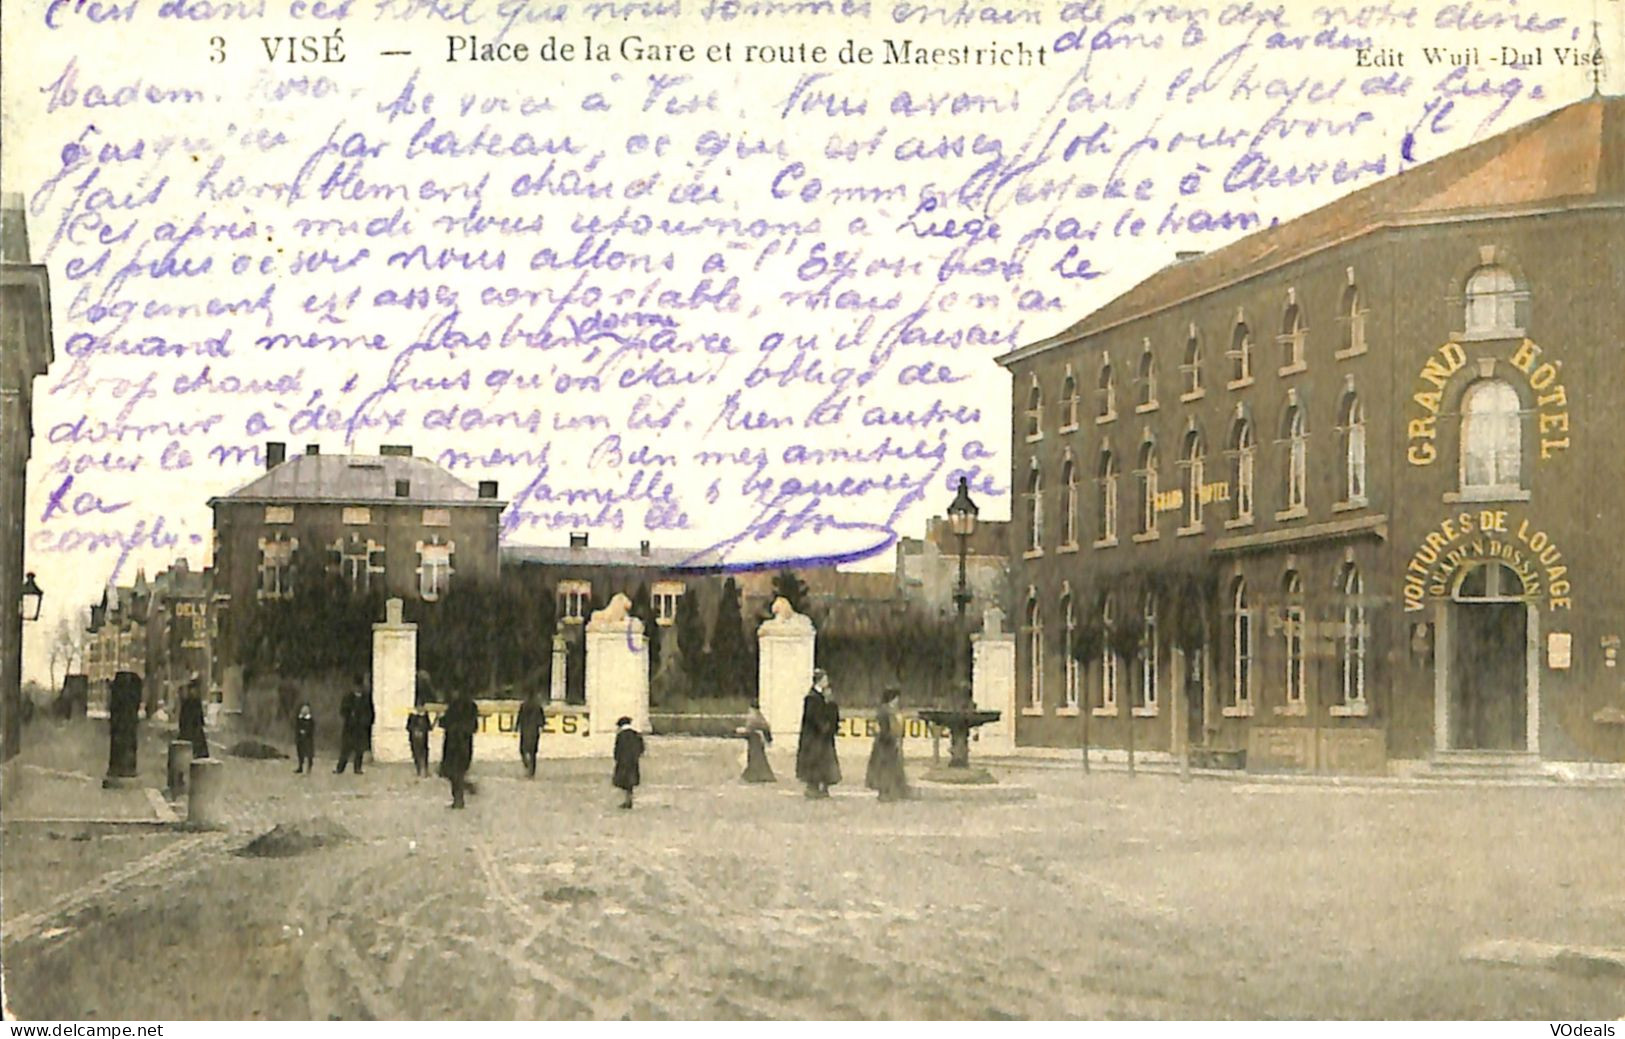 C'est dans cet hôtel que nous sommes entrain de prendre notre dîner,
dans le jardin
3 VISÉ — Place de la Gare et route de Maestricht
Edit Wuil-Dul Visé
Madem. Rosa. Me voici à Visé. Nous avons fait le trajet de Liège
jusqu'ici par bateau, ce qui est assez joli pour voir. Il
fait horriblement chaud ici. Comment est-ce à Anvers?
Cet après-midi nous retournons à Liège par le train,
et puis ce soir nous allons à l'Exposition. Le
logement est assez confortable, mais je n'ai
quand même pas bien dormi, parce qu'il faisait
trop chaud, & puis qu'on était obligé de
dormir à deux dans un lit. Rien d'autres
pour le moment. Bien mes amitiés à
la famille & beaucoup de
compliments de John
GRAND HÔTEL
GRAND HOTEL
VOITURES DE LOUAGE
QUADEN DOSSIN
DELV
VOITURES